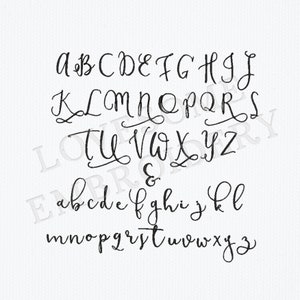 ABCDEFGHIJ
KLMNOPQRS
TUVWXYZ
&
abcdefghijkl
mnopqrstuvwxyz
LOVE ONE
EMBROIDERY